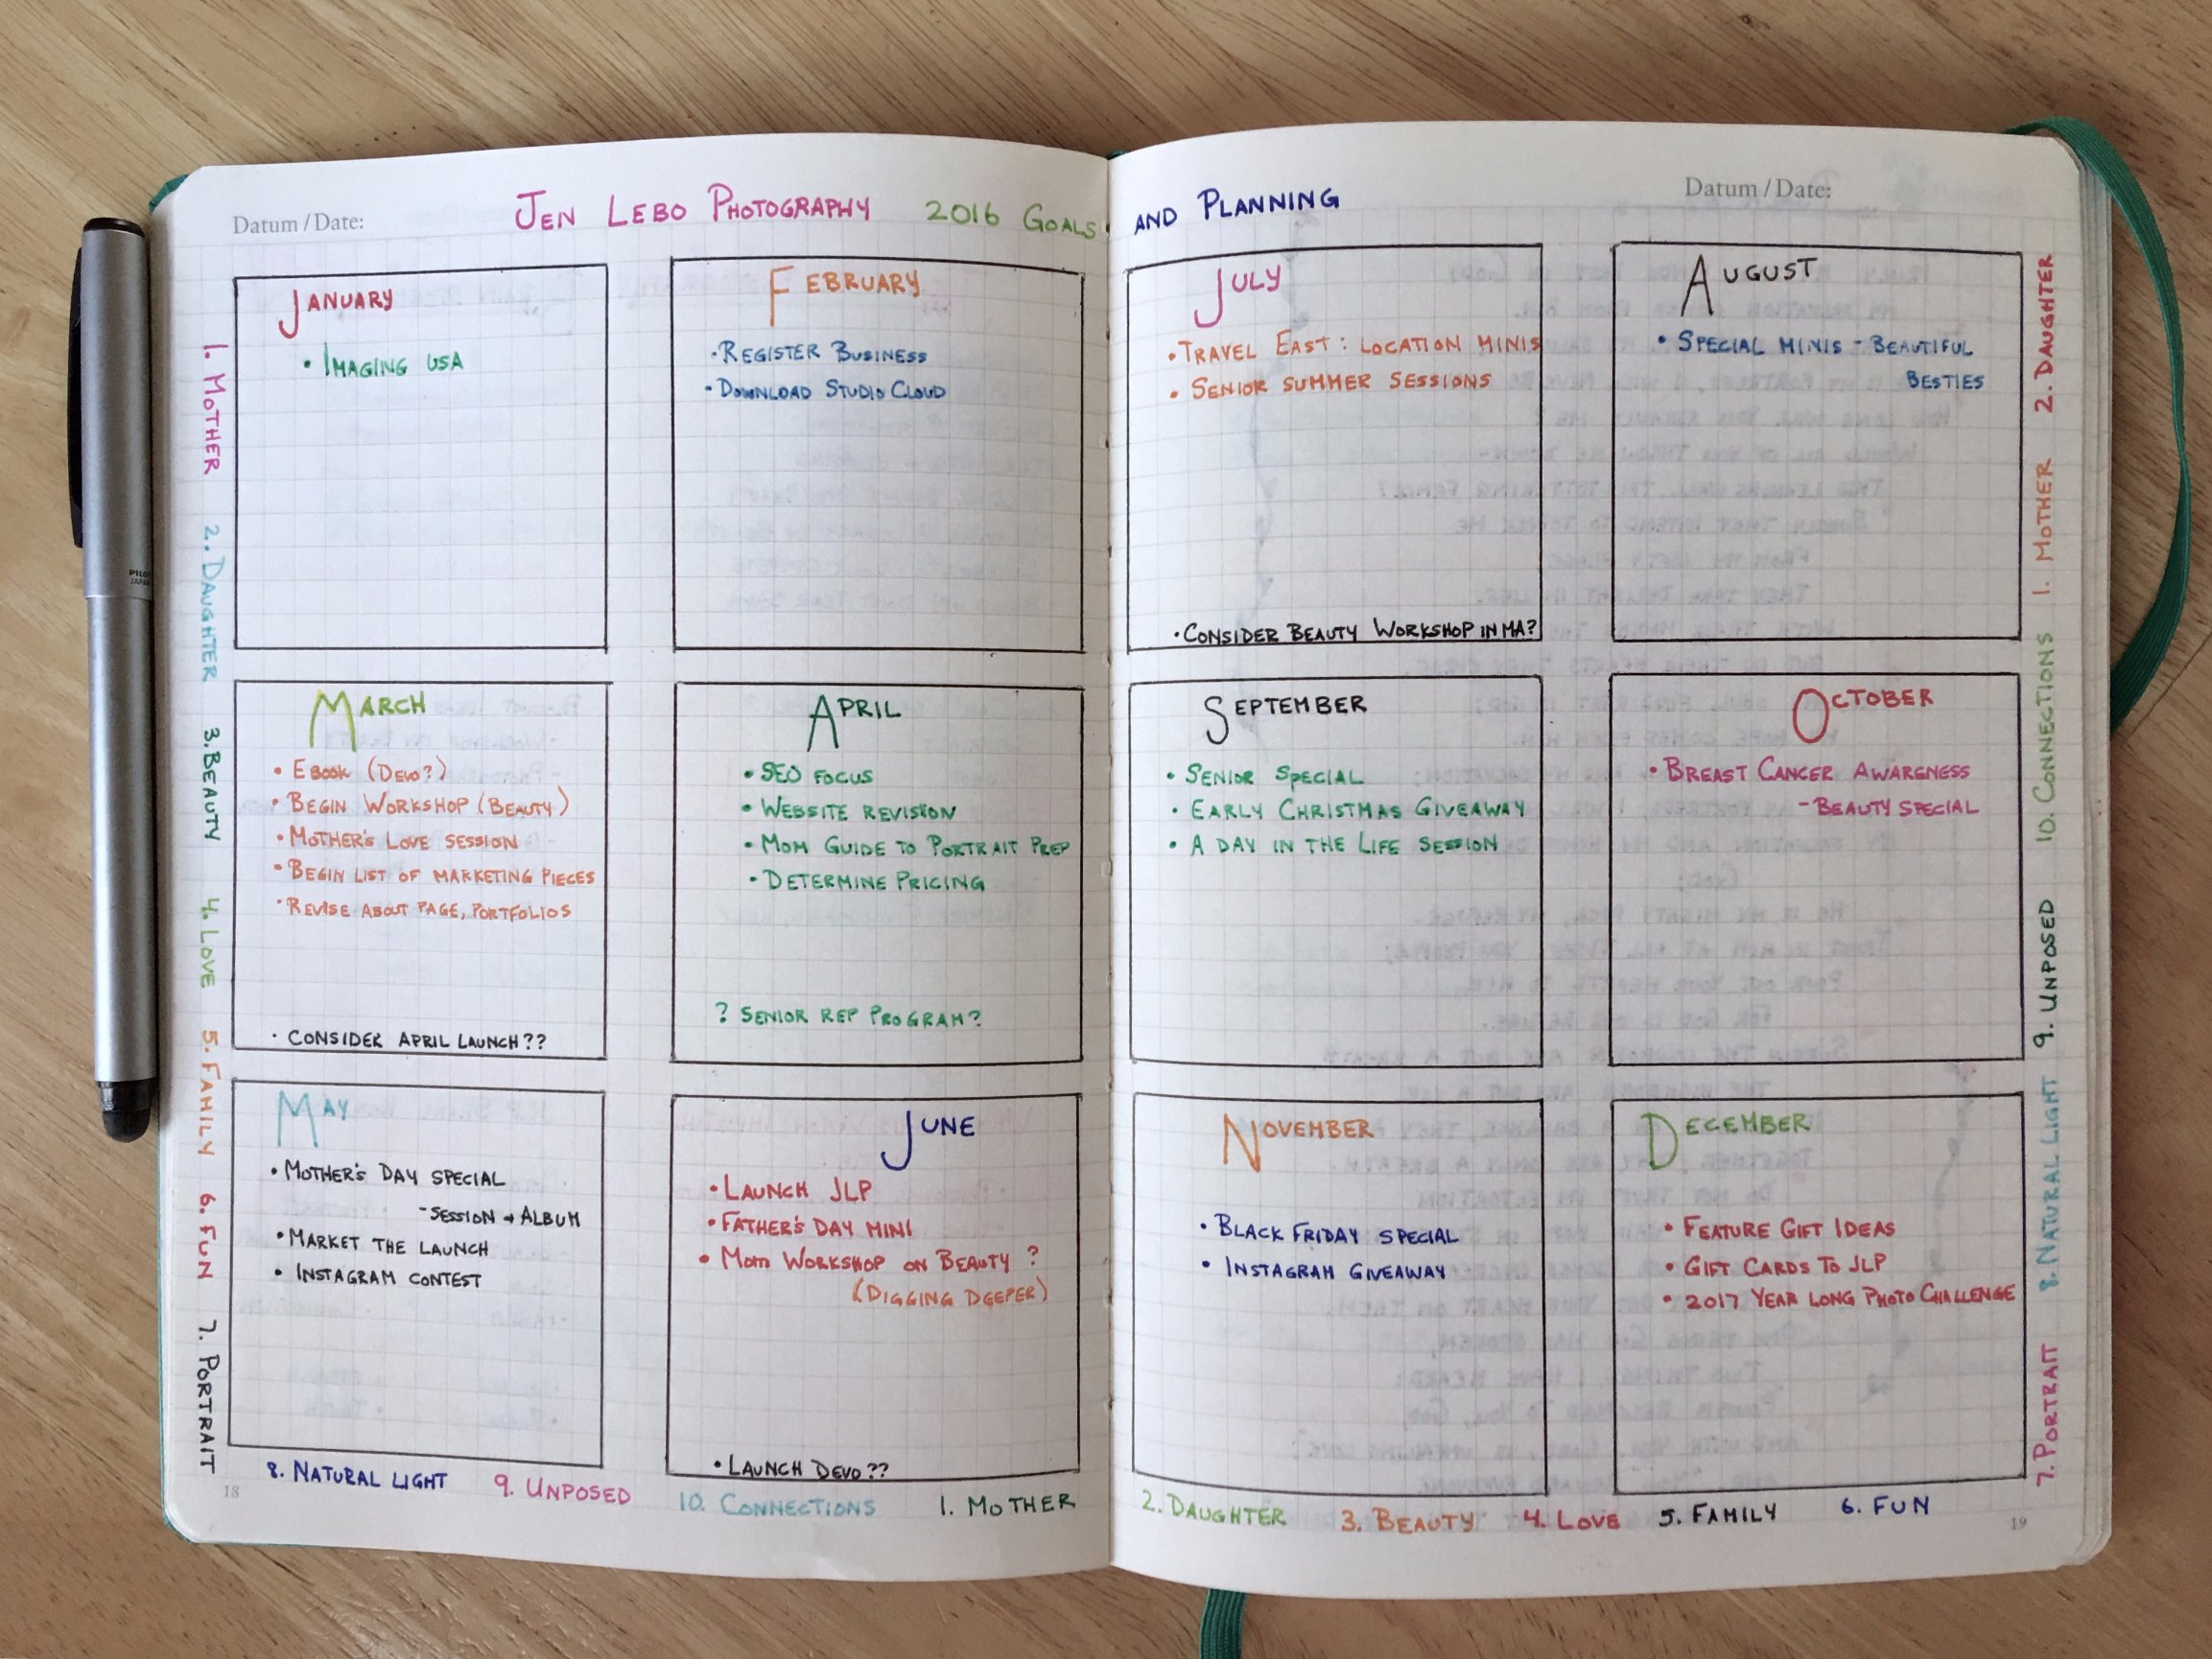 Datum / Date:
JEN LEBO PHOTOGRAPHY 2016 GOALS
JANUARY
• IMAGING USA
FEBRUARY
• REGISTER BUSINESS
• DOWNLOAD STUDIO CLOUD
MARCH
• EBOOK (DEVO?)
• BEGIN WORKSHOP (BEAUTY)
• MOTHER'S LOVE SESSION
• BEGIN LIST OF MARKETING PIECES
• REVISE ABOUT PAGE, PORTFOLIOS
• CONSIDER APRIL LAUNCH??
APRIL
• SEO FOCUS
• WEBSITE REVISION
• MOM GUIDE TO PORTRAIT PREP
• DETERMINE PRICING
? SENIOR REP PROGRAM?
MAY
• MOTHER'S DAY SPECIAL
- SESSION + ALBUM
• MARKET THE LAUNCH
• INSTAGRAM CONTEST
JUNE
• LAUNCH JLP
• FATHER'S DAY MINI
• MOM WORKSHOP ON BEAUTY ?
(DIGGING DEEPER)
• LAUNCH DEVO??
1. MOTHER
2. DAUGHTER
3. BEAUTY
4. LOVE
5. FAMILY
6. FUN
7. PORTRAIT
8. NATURAL LIGHT
9. UNPOSED
10. CONNECTIONS
1. MOTHER
18
PILOT
JAPAN
AND PLANNING
Datum / Date:
JULY
• TRAVEL EAST: LOCATION MINIS
• SENIOR SUMMER SESSIONS
• CONSIDER BEAUTY WORKSHOP IN MA?
AUGUST
• SPECIAL MINIS - BEAUTIFUL
BESTIES
SEPTEMBER
• SENIOR SPECIAL
• EARLY CHRISTMAS GIVEAWAY
• A DAY IN THE LIFE SESSION
OCTOBER
• BREAST CANCER AWARENESS
- BEAUTY SPECIAL
NOVEMBER
• BLACK FRIDAY SPECIAL
• INSTAGRAM GIVEAWAY
DECEMBER
• FEATURE GIFT IDEAS
• GIFT CARDS TO JLP
• 2017 YEAR LONG PHOTO CHALLENGE
2. DAUGHTER
3. BEAUTY
4. LOVE
5. FAMILY
6. FUN
7. PORTRAIT
8. NATURAL LIGHT
9. UNPOSED
10. CONNECTIONS
1. MOTHER
2. DAUGHTER
19